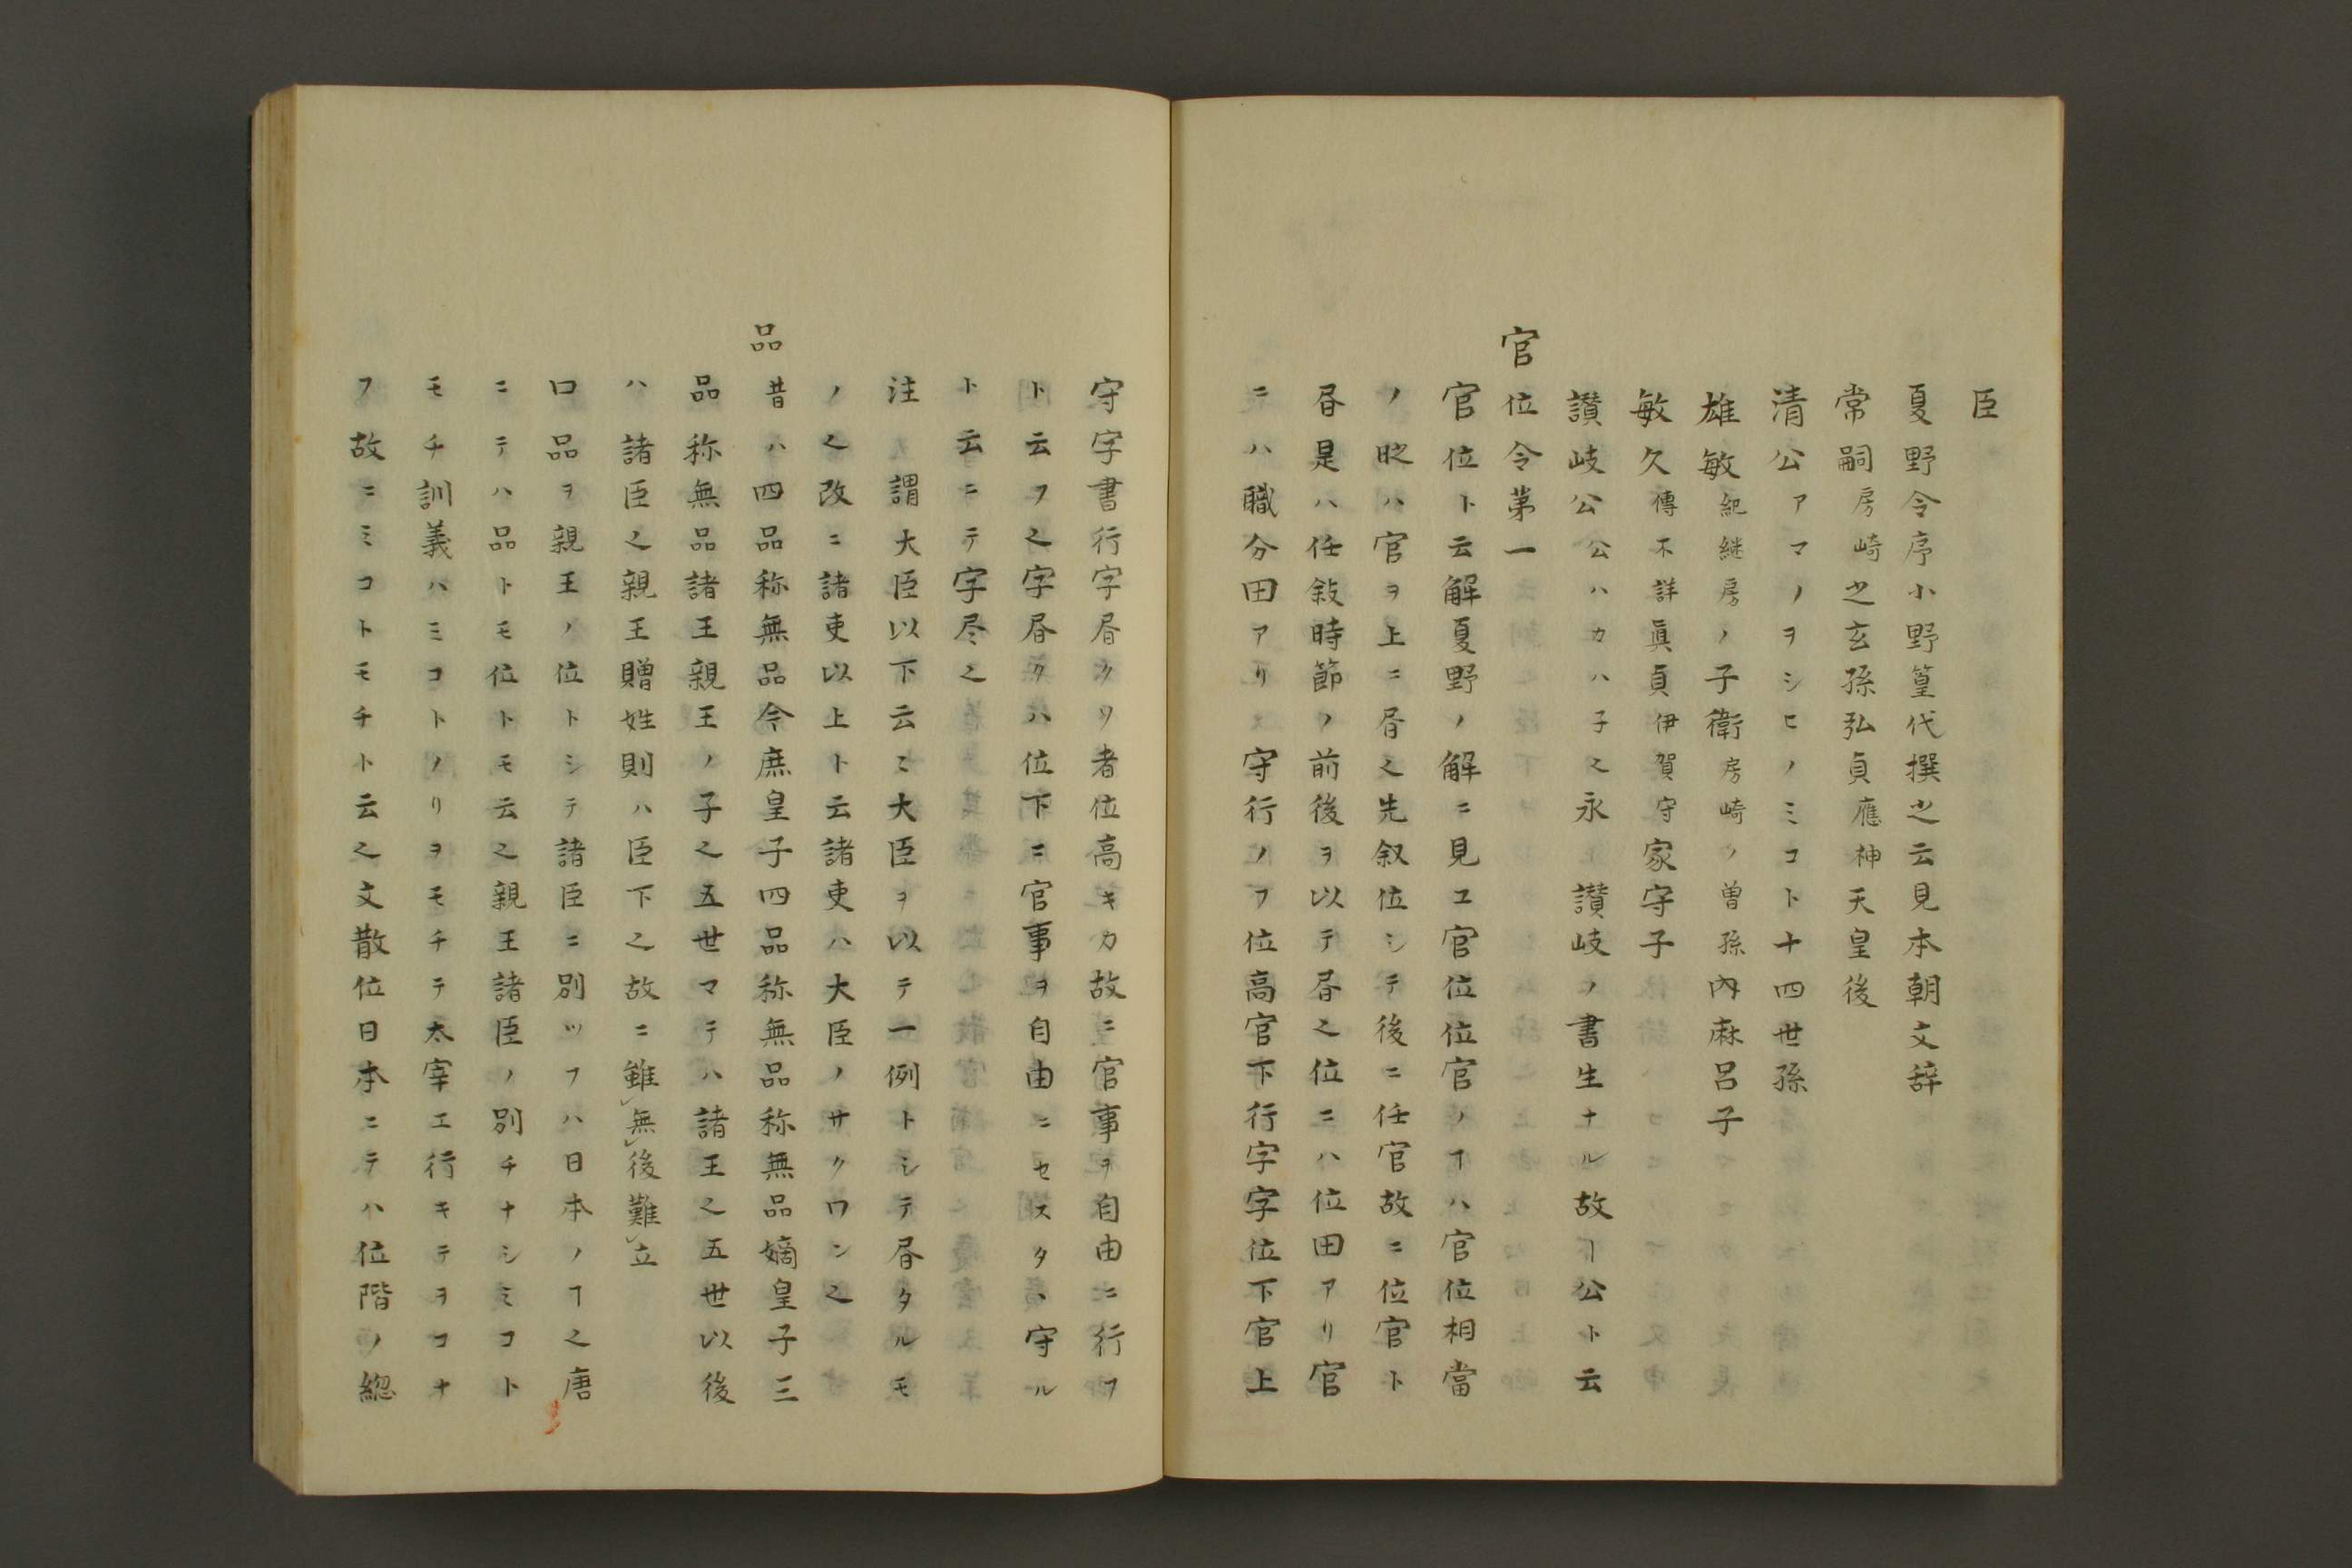 臣
夏野令序小野篁代撰之云見本朝文辞
常嗣房崎之玄孫弘貞應神天皇後
清公アマノヲシヒノミコト十四世孫
雄敏紀継房ノ子衛房崎ノ曽孫内麻呂子
敏久傳不詳眞貞伊賀守家守子
讃岐公公ハカハ子之永讃岐ノ書生ナル故ー公ト云
官位令第一
官位ト云解夏野ノ解ニ見エ官位位官ノヿハ官位相當
ノ昵ハ官ヲ上ニ昬之先叙位シテ後ニ任官故ニ位官ト
昬是ハ任敍時節ノ前後ヲ以テ昬之位ニハ位田アリ官
ニハ職分田アリ守行ノフ位高官下行字字位下官上
守字書行字昬クワ者位高キカ故ニ官事ヲ自由ニ行フ
ト云フ之字昬クハ位下ニ官事ヲ自由ニセスタヽ守ル
ト云ニテ字尽之
注謂大臣以下云ミ大臣ヲ以テ一例トシテ昬タルモ
ノ之改ニ諸吏以上ト云諸吏ハ大臣ノサクワン之
品昔ハ四品称無品今庶皇子四品称無品称無品嫡皇子三
品称無品諸王親王ノ子之五世マテハ諸王之五世以後
ハ諸臣之親王贈姓則ハ臣下之故ニ雖無後難立
口品ヲ親王ノ位トシテ諸臣ニ別ツフハ日本ノヿ之唐
ニテハ品トモ位トモ云之親王諸臣ノ別チナシミコト
モチ訓義ハミコトノリヲモチテ太宰エ行キテヲコナ
フ故ニミコトモチト云之文散位日本ニテハ位階ノ総